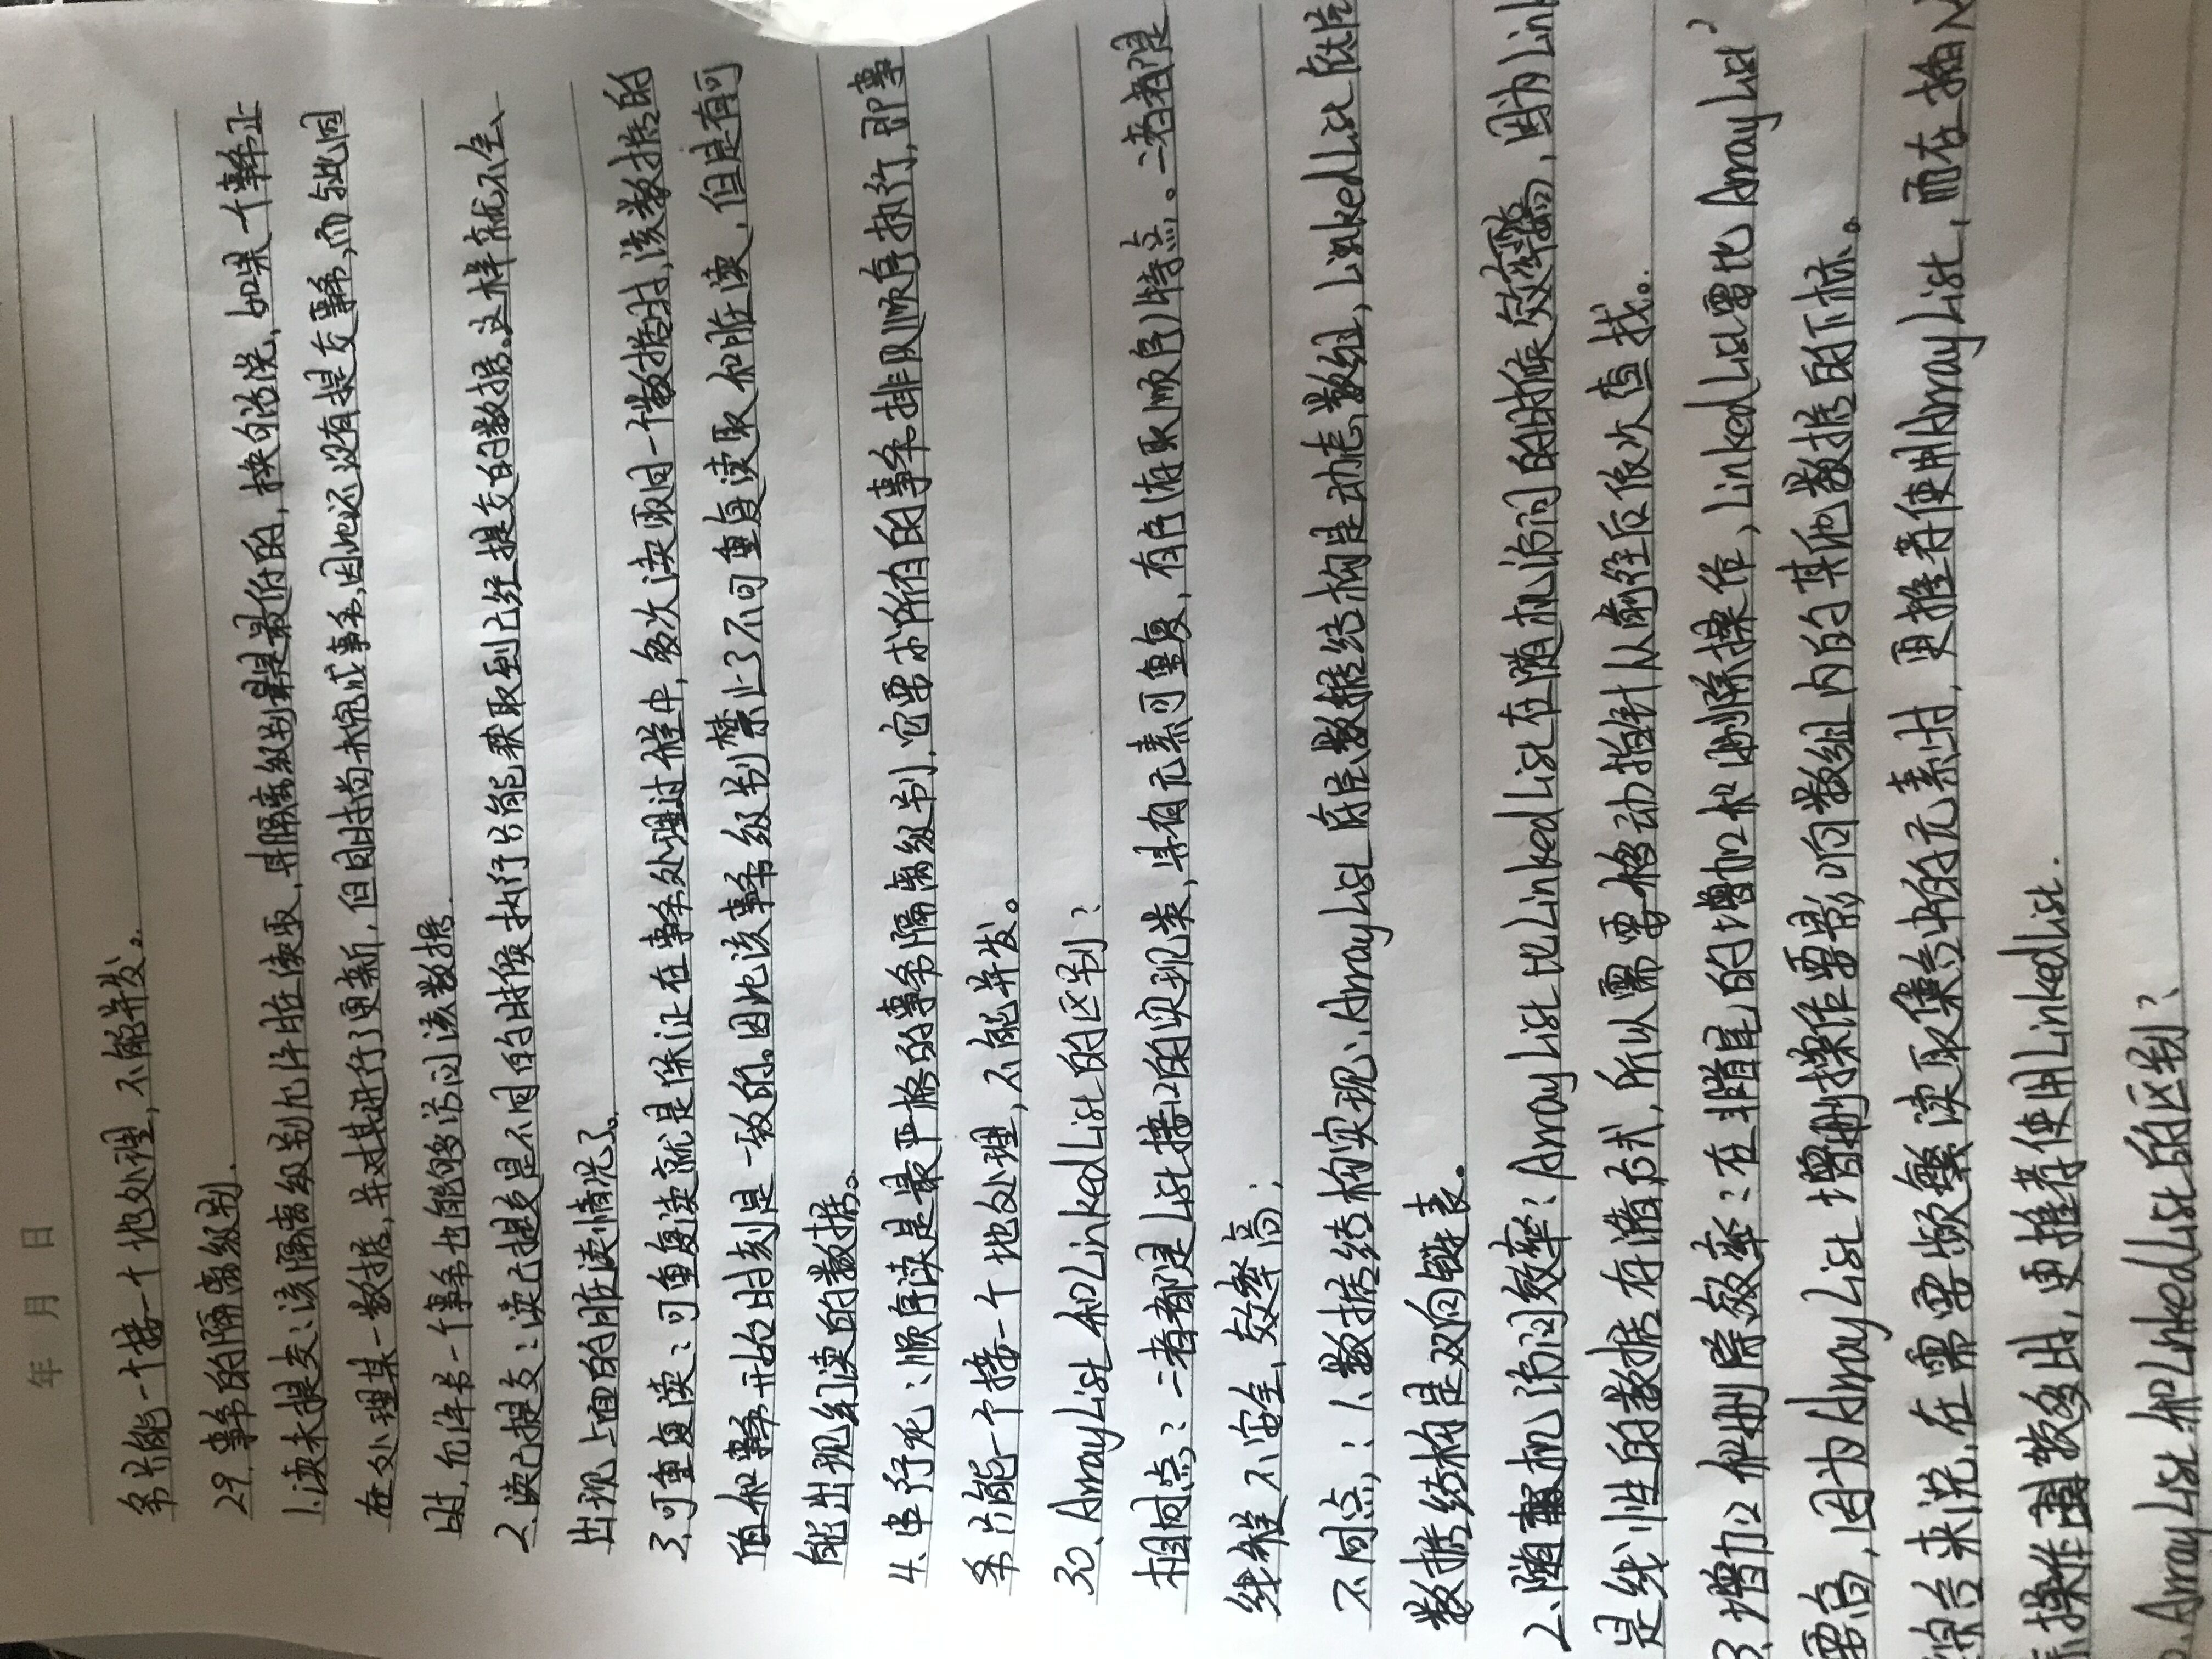 年 月 日
务只能一个接一个地处理,不能并发。
29.事务的隔离级别.
1.读未提交:该隔离级别允许脏读取,其隔离级别是最低的,换句话说,如果一个事务正
在处理某一数据,并对其进行了更新,但同时尚未完成事务,因此还没有提交事务,而与此同
时,允许另一个事务也能够访问该数据.
2.读已提交:读已提交是不同的时候执行只能获取到已经提交的数据。这样就不会
出现上面的脏读情况了。
3.可重复读:可重复读就是保证在事务处理过程中,多次读取同一个数据时,该数据的
值和事务开始时刻是一致的。因此该事务级别禁止了不可重复读取和脏读,但是有可
能出现幻读的数据。
4.串行化:顺序读是最严格的事务隔离级别,它要求所有的事务排队顺序执行,即事
务只能一个接一个地处理,不能并发。
30、ArrayList和LinkedList的区别?
相同点:二者都是List接口的实现类,具有元素可重复,有序(存取顺序)特点。二者都是
线程不安全,效率高;
不同点:1、数据结构实现:ArrayList底层数据结构是动态数组,LinkedList底层
数据结构是双向链表。
2、随机访问效率:ArrayList比LinkedList在随机访问的时候效率高,因为Link
是线性的数据存储方式,所以需要移动指针从前往后依次查找。
3.增加和删除效率:在非首尾的增加和删除操作,LinkedList要比ArrayList
要高,因为ArrayList增删操作要影响数组内的其他数据的下标。
综合来说,在需要频繁读取集合中的元素时,更推荐使用ArrayList,而在插入
操作较多时,更推荐使用LinkedList.
.ArrayList和LinkedList的区别?